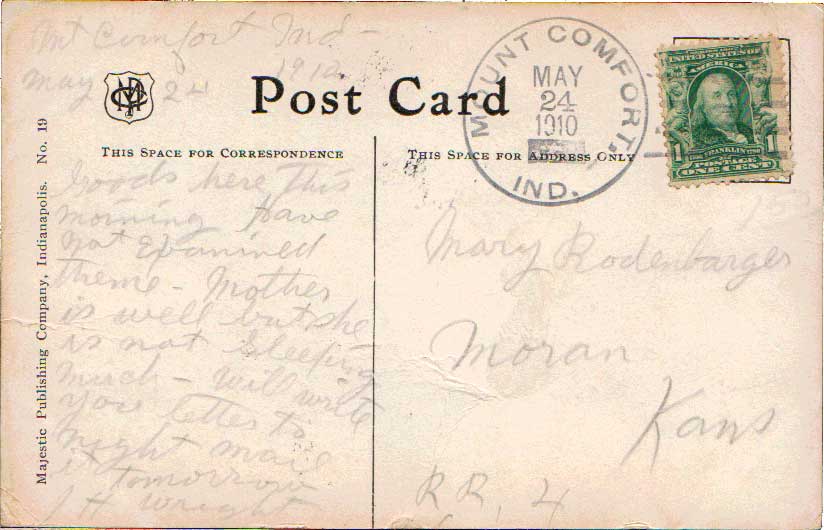 Mt Comfort Ind -
May 24 1910
Post Card
THIS SPACE FOR CORRESPONDENCE
THIS SPACE FOR ADDRESS ONLY
MOUNT COMFORT, IND.
MAY
24
1910
UNITED STATES OF
AMERICA
FRANKLIN
POSTAGE
1 ONE CENT
Majestic Publishing Company, Indianapolis. No. 19
Goods here this
morning have
not examined
theme - Mother
is well but she
is not sleeping
much - will write
you letter to
night mail
it tomorrow
J H Wright
Mary Rodenbarger
Moran
Kans
RR, 4